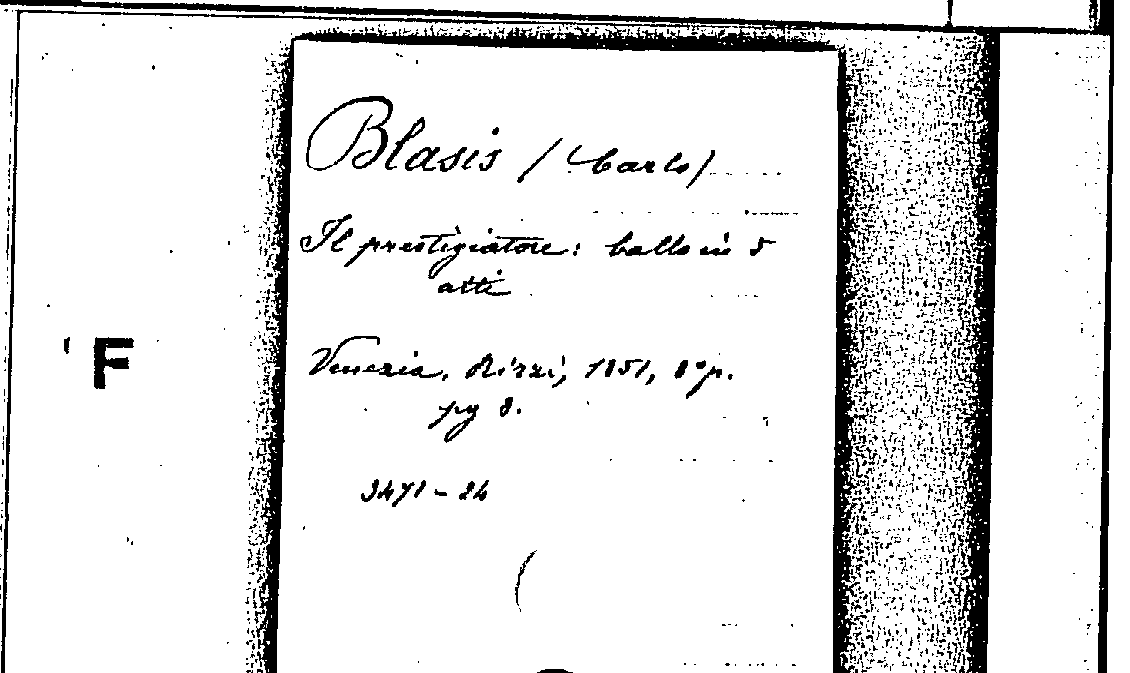 Blasis / (Carlo)
Il prestigiatore: ballo in 5
atti
Venezia, Rizzi, 1851, 8° p.
pg 8.
F